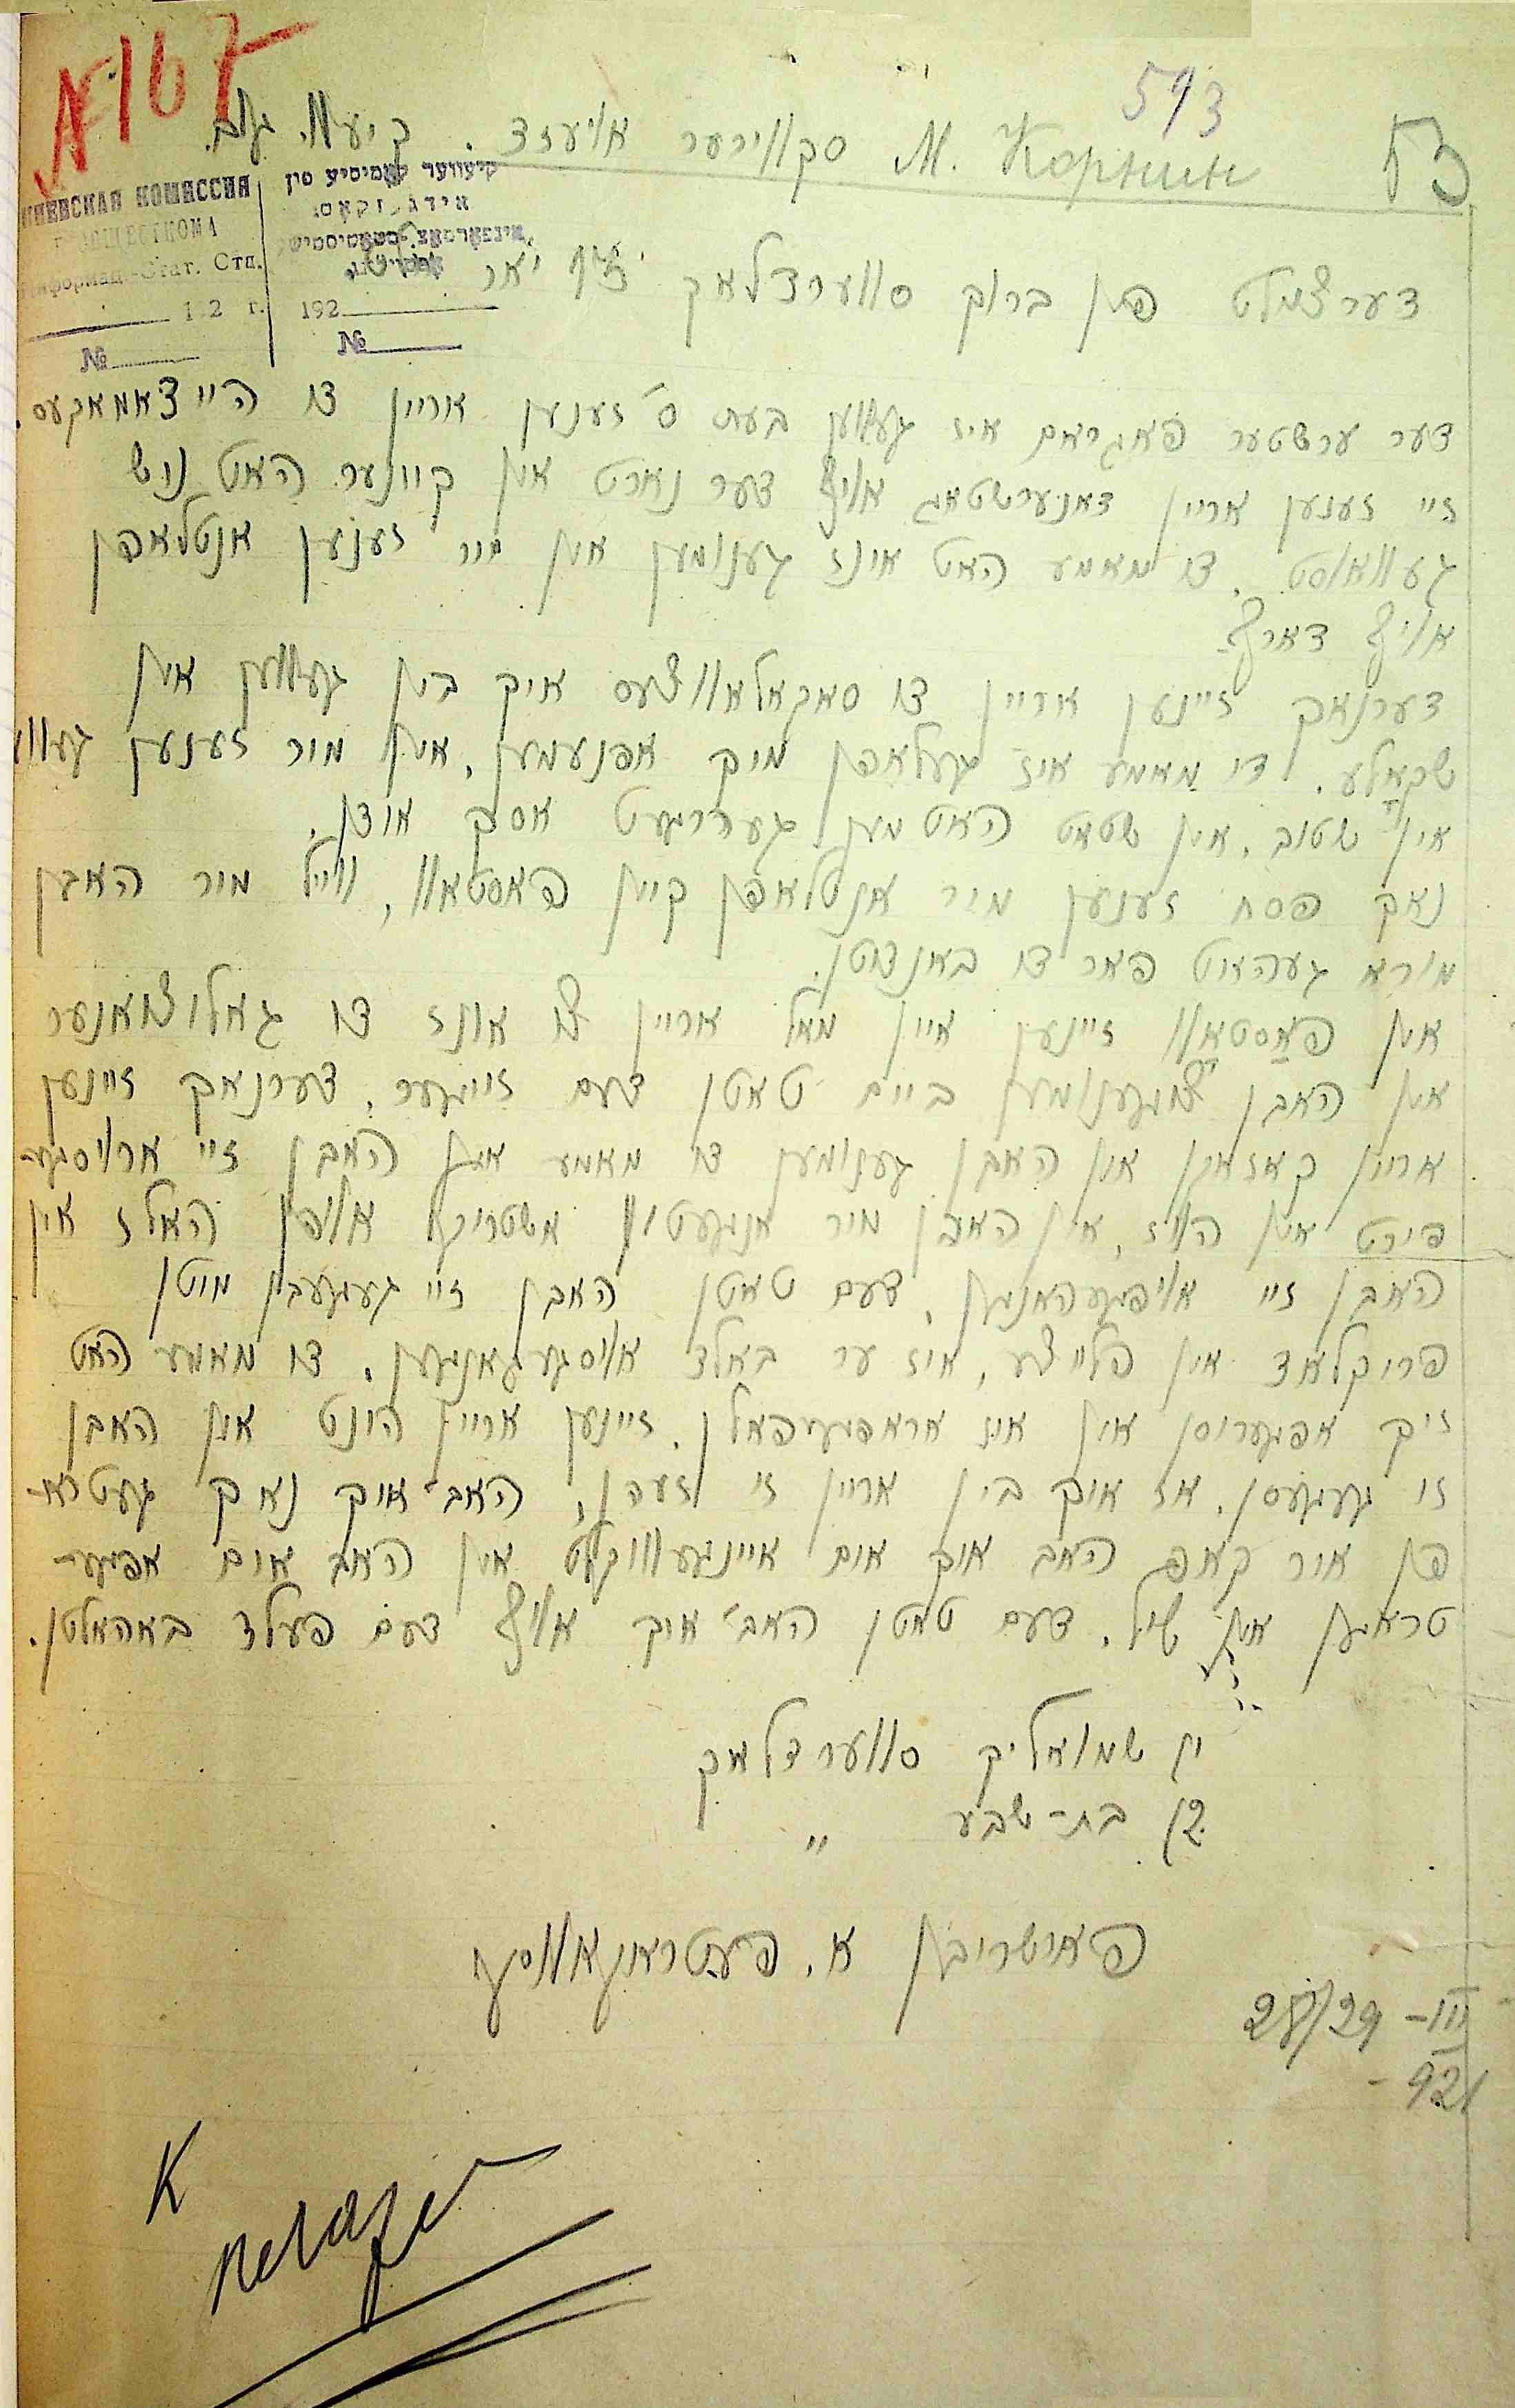 №167
593
53
М. Корнин סקווירער אויעזד. קיעוו. גוב.
КИЕВСКАЯ КОМИССИЯ
ЕВОБЩЕСТКОМА
Информац.-Стат. Отд.
192 г.
№
קיעווער קאמיסיע פון
אידגעזקאם
אינפארמאצ. סטאטיסטישע
192
№
דערציילט פון ברוך סווערדלאק יאר
דער ערשטער פאגראם איז געווען בעת ס'זענען אריין די היידאמאקעס.
זיי זענען אריין דאנערשטאג אויף דער נאכט און קיינער האט ניט
געוואוסט. די מאמע האט אונז גענומען און מיר זענען אנטלאפן
אויף דארף.
דערנאך זיינען אריין די סאקאלאווצעס איך בין געווען אין
שקאלע. די מאמע איז געלאפן מיך אפנעמען, און מיר זענען געווען
אין שטוב. אין שטאט האט מען געהרגעט אסך אידן.
נאך פסח זענען מיר אנטלאפן קיין פאסטאוו, ווייל מיר האבן
מורא געהאט פאר די באנדיטן.
אין פאסטאוו זיינען איין מאל אריין צו אונז די גאלוצאנער
און האבן צוגענומען ביים טאטן דעם זייגער, דערנאך זיינען
אריין קאזאקן און האבן גענומען די מאמע און האבן זיי ארויסגע-
פירט אין הויז, און האבן מיר אנגעטון א שטריק אויפן האלז און
האבן זיי אויפגעהאנגען. דעם טאטן האבן זיי געגעבן מיטן
פריקלאד אין פלייצע, איז ער באלד אויסגעגאנגען. די מאמע האט
זיך אפגעריסן און איז אראפגעפאלן. זיינען אריין הינט און האבן
זי געגעסן. אז איך בין אריין זי זעהן, האב איך נאך געטראפן
פון איר קאפ האב איך אים איינגעוויקלט און האב אים אפגע-
טראגען אין שיל. דעם טאטן האב איך אויף דעם פעלד באהאלטן.
1) שמואליק סווערדלאק
2) בת-שבע "
פארשריבן א. פעטראנאווסקי
28/29 - III
- 921